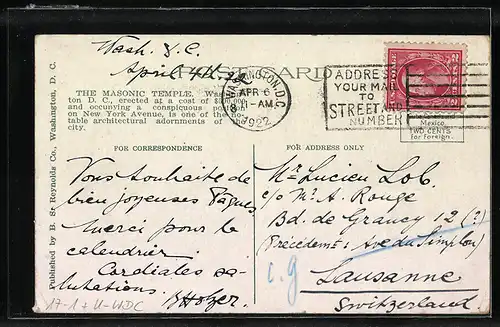 Wash. D.C.
April 4th, 22
POST CARD
WASHINGTON, D.C.
APR 6
8 -AM
1922
ADDRESS
YOUR MAIL
TO
STREET AND
NUMBER
THE MASONIC TEMPLE.
ton D. C., erected at a cost of
and occupying a conspicuous
on New York Avenue, is one of the no-
table architectural adornments of the
city.
Mexico.
TWO CENTS
for Foreign.
FOR CORRESPONDENCE
FOR ADDRESS ONLY
Published by B. S. Reynolds Co., Washington, D. C.
Vous souhaite de
bien joyeuses Pâques
Merci pour le
calendrier
Cordiales sa-
lutations.
Holzer.
17-17 U-WDC
Mr Lucien Lob.
c/o Mr. A. Rouge
Bd. de Grancy 12 (?)
(Précédem: Ave du Simplon)
c.g
Lausanne
Switzerland